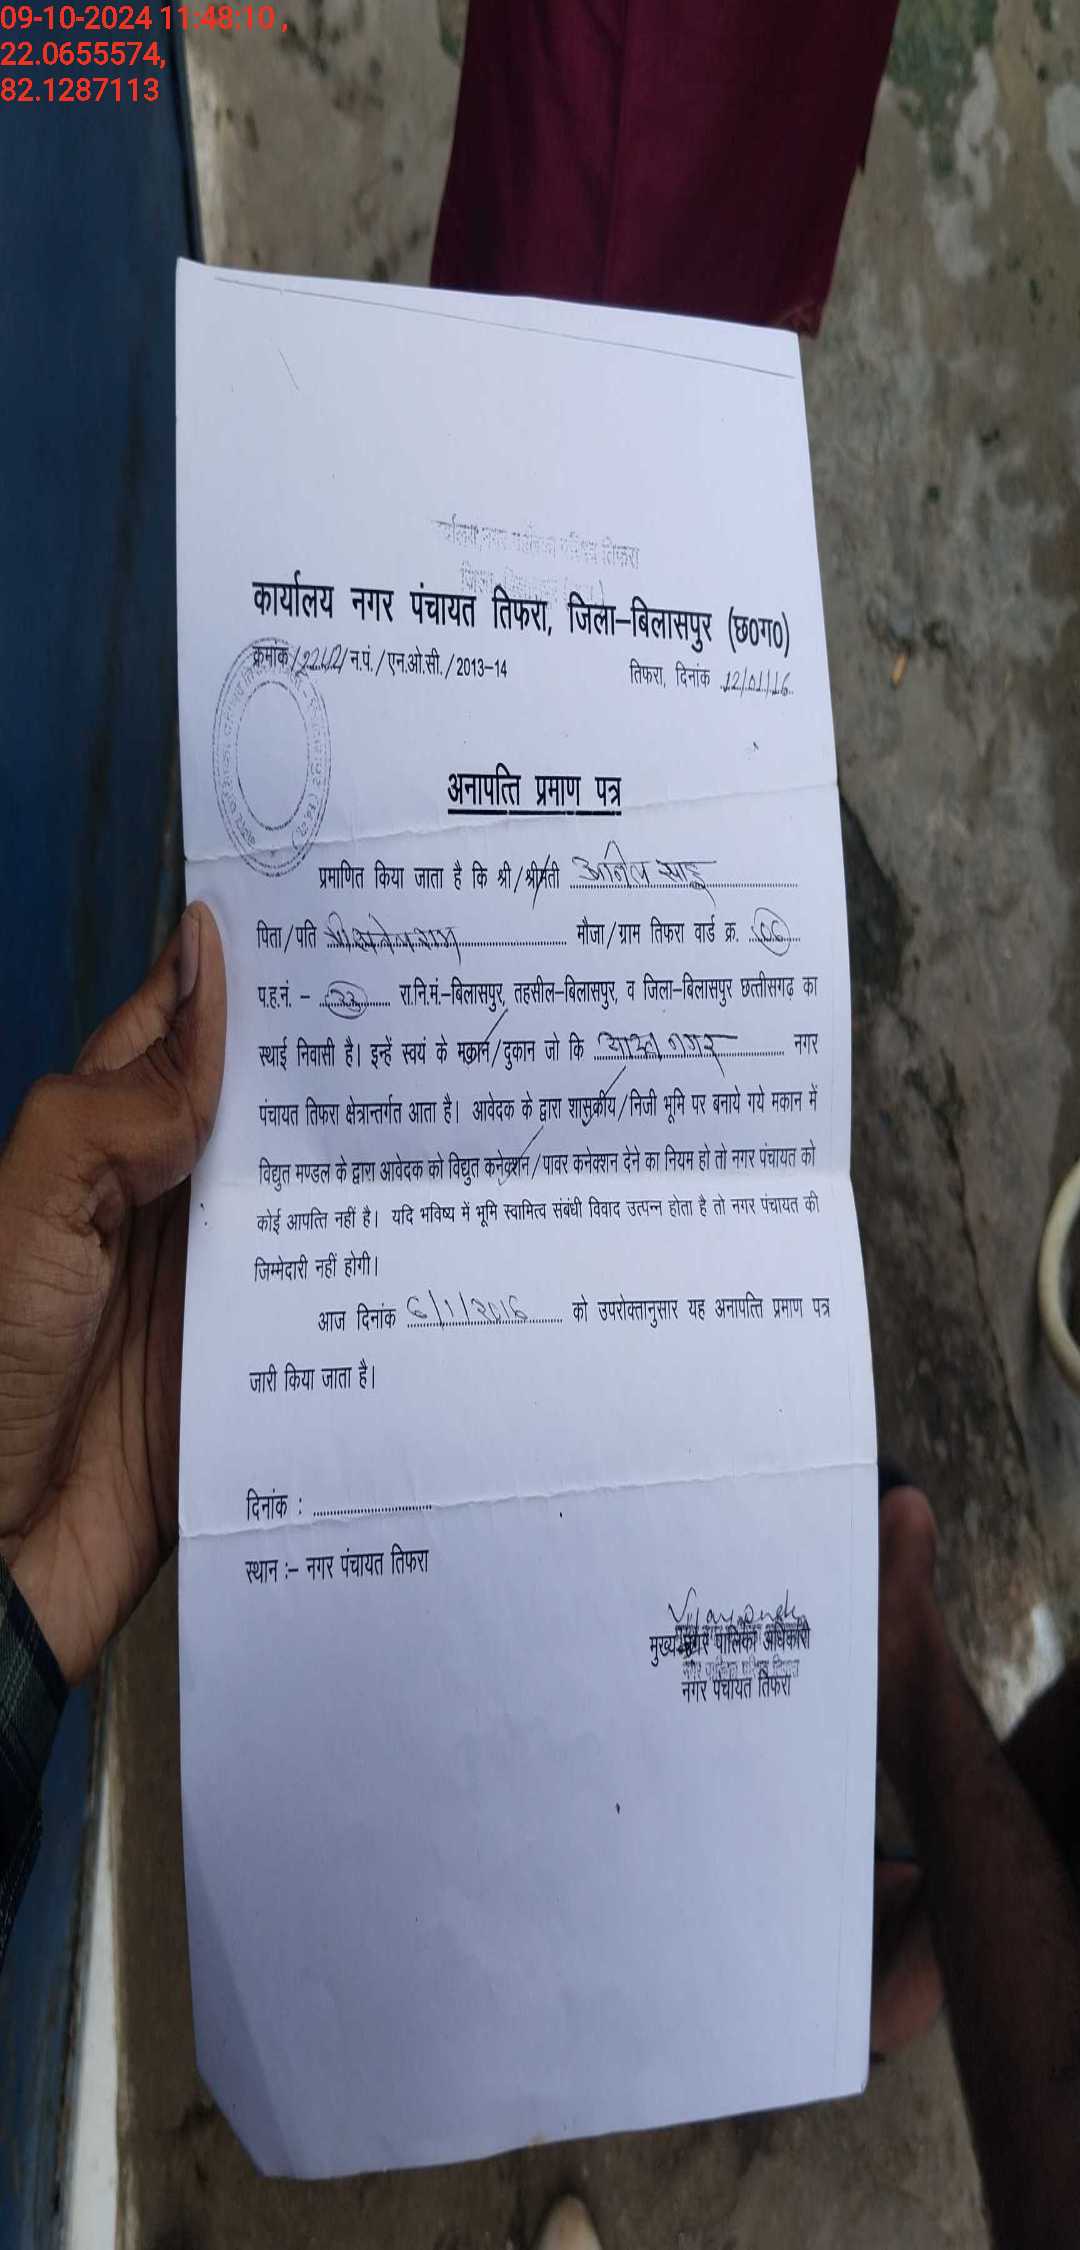 09-10-2024 11:48:10 ,
22.0655574,
82.1287113
कार्यालय नगर पालिका परिषद तिफरा
कार्यालय नगर पंचायत तिफरा, जिला–बिलासपुर (छ0ग0)
क्रमांक/ /न.पं./एन.ओ.सी./2013–14 तिफरा, दिनांक 12/01/16
अनापत्ति प्रमाण पत्र
प्रमाणित किया जाता है कि श्री/श्रीमती अनिल साहू
पिता/पति श्री मौजा/ग्राम तिफरा वार्ड क्र. 06
प.ह.नं. – रा.नि.मं.–बिलासपुर, तहसील–बिलासपुर, व जिला–बिलासपुर छत्तीसगढ़ का
स्थाई निवासी है। इन्हें स्वयं के मकान/दुकान जो कि नगर नगर
पंचायत तिफरा क्षेत्रान्तर्गत आता है। आवेदक के द्वारा शासकीय/निजी भूमि पर बनाये गये मकान में
विद्युत मण्डल के द्वारा आवेदक को विद्युत कनेक्शन/पावर कनेक्शन देने का नियम हो तो नगर पंचायत को
कोई आपत्ति नहीं है। यदि भविष्य में भूमि स्वामित्व संबंधी विवाद उत्पन्न होता है तो नगर पंचायत की
जिम्मेदारी नहीं होगी।
आज दिनांक 6/1/2016 को उपरोक्तानुसार यह अनापत्ति प्रमाण पत्र
जारी किया जाता है।
दिनांक :
स्थान :– नगर पंचायत तिफरा
मुख्य नगर पालिका अधिकारी
नगर पंचायत तिफरा